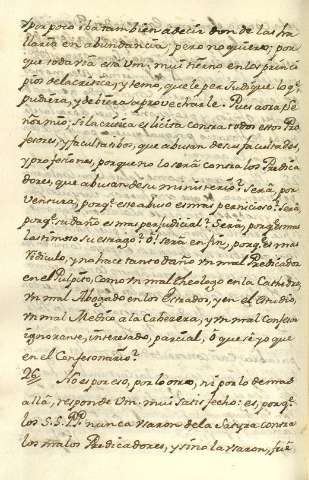 y por poco iba tambien a decir donde las ha
llaria en abundancia; pero no quiero; por
que todavia està Vm. mui tierno en los princi
pios de la critica, y temo, que le perjudique lo qᵉ
pudiera, y debiera aprovecharle. Pues aora Se
ñor mio; si la critica es licita contra todos essos Pro
fesores, y facultativos, que abusan de sus facultades,
y profesiones, porque no lo será contra los Predica
dores, que abusan de su ministerio? Será, por
ventura, porqᵉ ese abuso es mas pernicioso? Será,
porqᵉ su daño es mas perjudicial? Será, porqᵉ es mas
lastimoso su estrago? O! será en fin, porqᵉ es mas
ridiculo, y no hace tanto daño vn mal Predicador
en el Pulpito, como vn mal Theologo en la Cathedra,
vn mal Abogado en los Estrados, y en el Estudio,
vn mal Medico a la Cabezera, y vn mal Confesor
ignorante, interesado, parcial, ò que sè yo que
en el Confesonario?
26. No es por eso, por lo otro, ni por lo de mas
allá, responde Vm. mui satisfecho: es, porqᵉ
los S.S. PP. nunca vsaron de la Satyra contra
los malos Predicadores, y si no la vsaron, fue